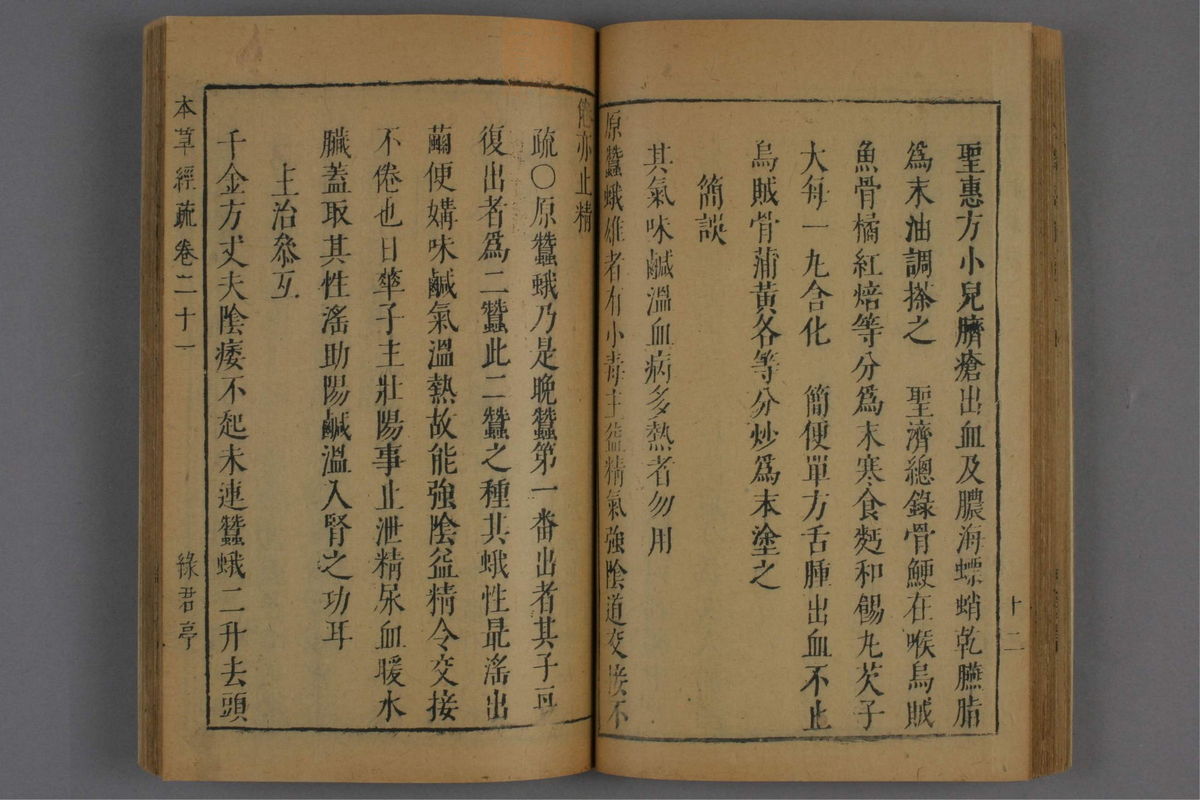 聖惠方小兒臍瘡出血及膿海螵蛸乾臙脂
爲末油調搽之　聖濟總錄骨鯁在喉烏賊
魚骨橘紅焙等分爲末寒食麪和餳丸芡子
大每一丸含化　簡便單方舌腫出血不止
烏賊骨蒲黃各等分炒爲末塗之
簡誤
其氣味鹹溫血病多熱者勿用
原蠶蛾雄者有小毒主益精氣強陰道交接不
倦亦止精
疏○原蠶蛾乃是晚蠶第一番出者其子再
復出者爲二蠶此二蠶之種其蛾性最淫出
繭便媾味鹹氣溫熱故能強陰益精令交接
不倦也日華子主壯陽事止泄精尿血暖水
臟蓋取其性淫助陽鹹溫入腎之功耳
主治叅互
千金方丈夫陰痿不起未連蠶蛾二升去頭
本草經疏卷二十一
綠君亭
十二